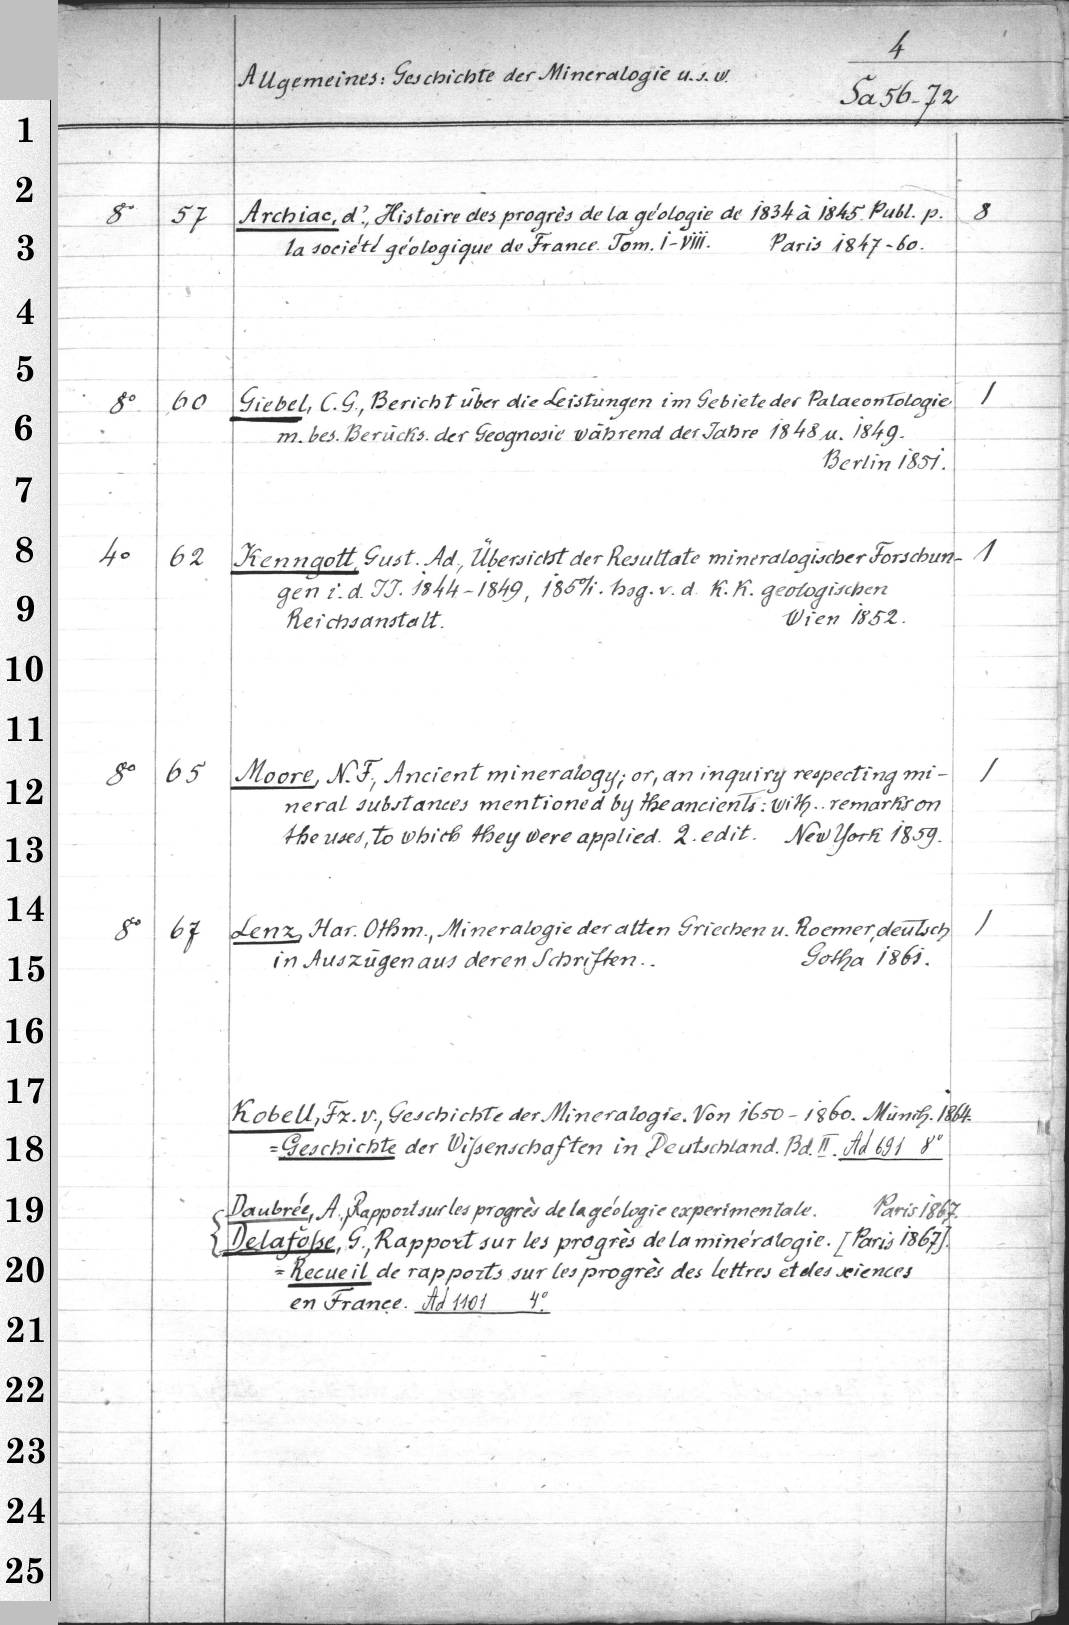 4
Allgemeines: Geschichte der Mineralogie u.s.w.
Sa 56-72
8° 57 Archiac, d', Histoire des progrès de la géologie de 1834 à 1845. Publ. p. 8
la société géologique de France. Tom. I-VIII. Paris 1847-60.
8° 60 Giebel, C.G., Bericht über die Leistungen im Gebiete der Palaeontologie 1
m. bes. Berücks. der Geognosie während der Jahre 1848 u. 1849.
Berlin 1851.
4° 62 Kenngott, Gust. Ad., Übersicht der Resultate mineralogischer Forschun- 1
gen i. d. JJ. 1844-1849, 1850/1. hsg. v. d. K.K. geologischen
Reichsanstalt. Wien 1852.
8° 65 Moore, N.F., Ancient mineralogy; or, an inquiry respecting mi- 1
neral substances mentioned by the ancients: with .. remarks on
the uses, to which they were applied. 2. edit. New York 1859.
8° 67 Lenz, Har. Othm., Mineralogie der alten Griechen u. Roemer, deutsch 1
in Auszügen aus deren Schriften.. Gotha 1861.
Kobell, Fz. v., Geschichte der Mineralogie. Von 1650-1860. Münch. 1864.
=Geschichte der Wissenschaften in Deutschland. Bd. II. Ad 691 8°
Daubrée, A., Rapport sur les progrès de la géologie experimentale. Paris 1867.
Delafosse, G., Rapport sur les progrès de la minéralogie. [Paris 1867].
= Recueil de rapports sur les progrès des lettres et des sciences
en France. Ad 1101 4°.
1
2
3
4
5
6
7
8
9
10
11
12
13
14
15
16
17
18
19
20
21
22
23
24
25